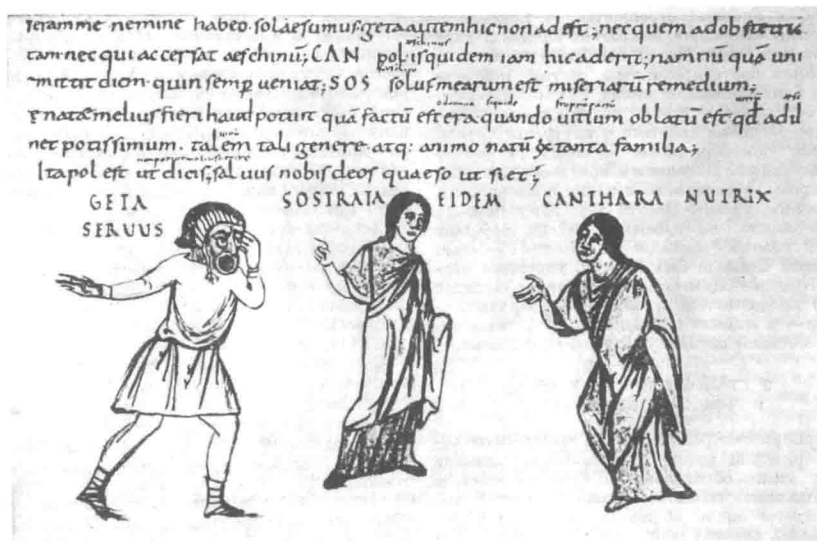 meramme neminē habeo. solae sumus. geta autem hic non adest; nec quem ad obstetri
tam nec qui accersat aeschinū; CAN pol is quidem iam hic aderit; nam nūquā unū
mittit diem quin semp ueniat; SOS solus mearum est miseriarū remedium;
natā melius fieri haud potuit quā factū est era quando uitium oblatū est qđ ad il
net potissimum. talem tali genere. atq: animo natū ex tanta familia;
Ita pol est ut dicis; saluus nobis deos quaeso ut siet;
GETA SERUUS
SOSTRATA EIDEM
CANTHARA NUTRIX